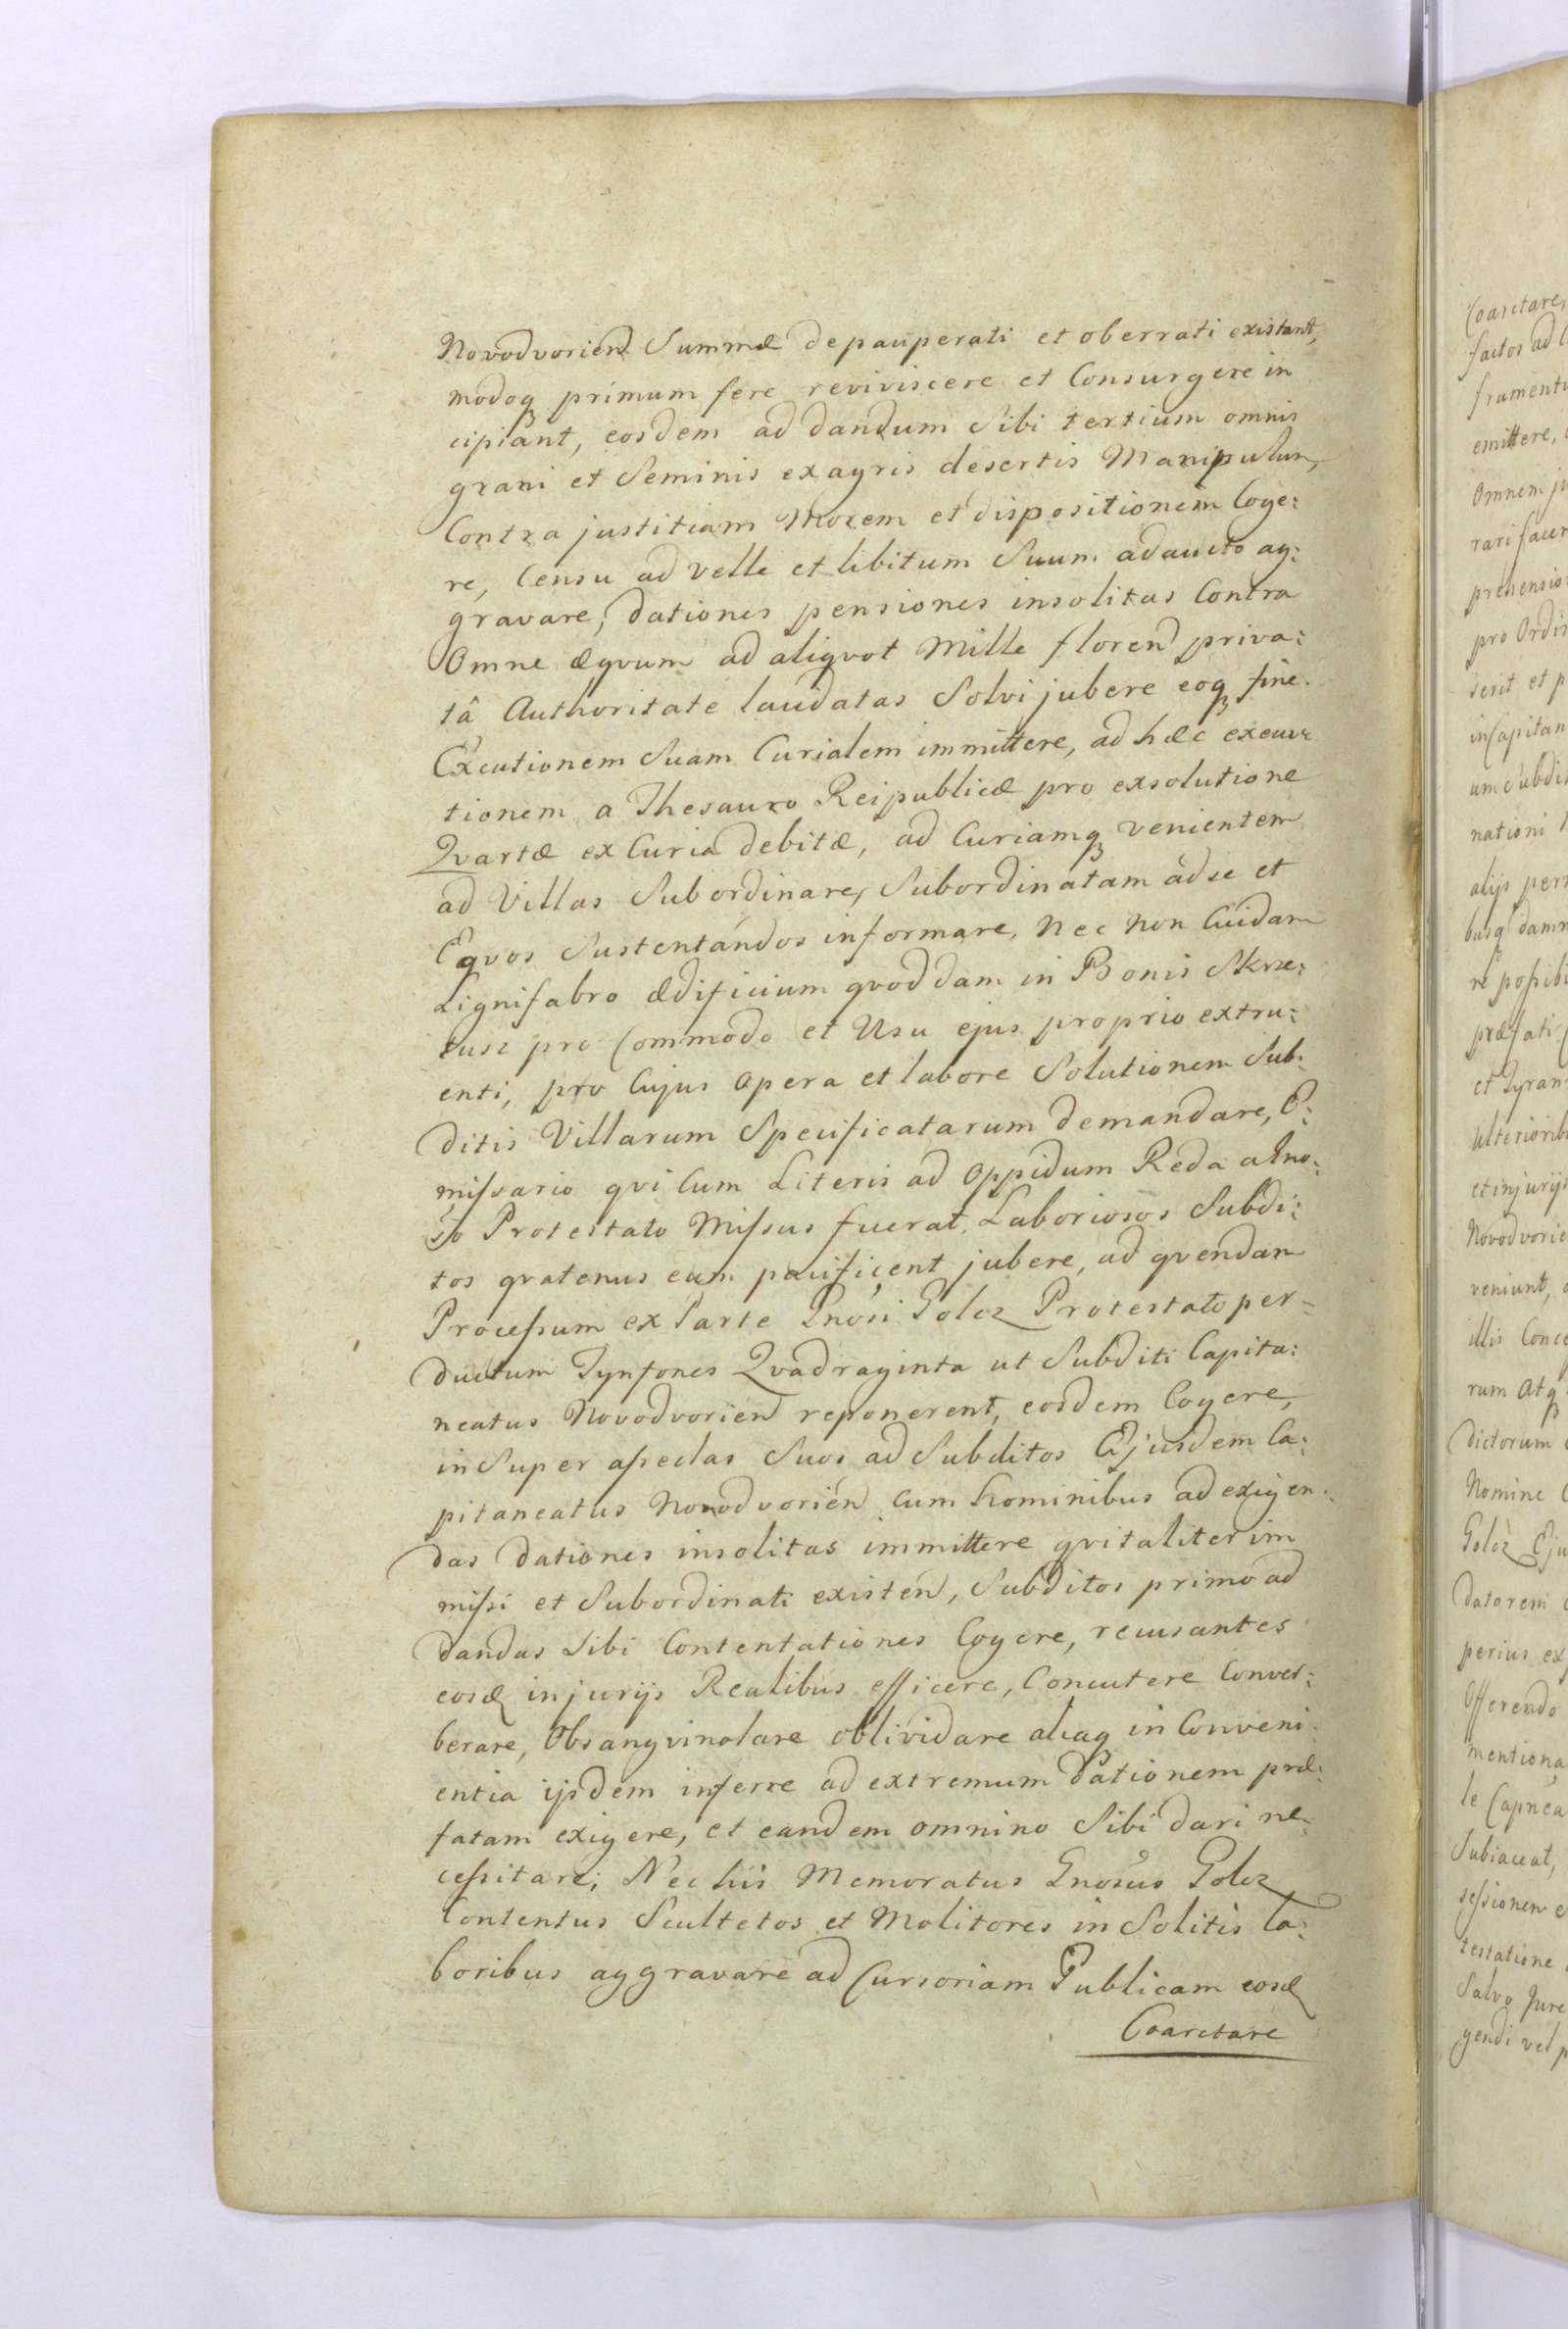 Novodvorien Summæ depauperati et oberrati existant,
modoq primum fere reviviscere et Consurgere in
cipiant, eosdem ad dandum Sibi tertium omnis
grani et Seminis ex agris desertis Manipulum,
Contra justitiam Morem et dispositionem Coge:
re, Censu ad velle et libitum Suum adaucto ag:
gravare, dationes pensiones insolitas Contra
Omne æqvum ad aliqvot Mille floren priva:
tâ Authoritate laudatas Solvi jubere eoq fine
Executionem Suam Curialem immittere, ad hæc execu
tionem a Thesauro Reipublicæ pro exsolutione
Qvartæ ex Curia debitæ, ad Curiamq venientem
ad Villas Subordinare, Subordinatam ad se et
Eqvos Sustentandos informare, Nec Non Cuidam
Lignifabro ædificium qvoddam in Bonis
pro Commodo et Usu ejus proprio extru:
enti, pro Cujus Opera et labore Solutionem Sub:
ditis Villarum Specificatarum demandare, E:
missario qvi Cum Literis ad Oppidum Reda a Gno:
so Protestato Missus fuerat, Laboriosos Subdi:
tos qvatenus eum pacificent jubere, ad qvendam
Processum ex Parte Gnosi Golcz Protestato per=
ductum Tynfones Qvadraginta ut Subditi Capita:
neatus Novodvorien reponerent, eosdem Cogere,
in Super aseclas Suos ad Subditos Ejusdem Ca:
pitaneatus Novodvorien Cum hominibus ad exigen:
das dationes insolitas immittere qvi taliter im
missi et Subordinati existen, Subditos primo ad
dandas Sibi Contentationes Cogere, recusantes
eosd injurijs Realibus efficere, Concutere Conver:
berare, Obsangvinolare oblividare aliaq in Conveni
entia ijsdem inferre ad extremum dationem præ:
fatam exigere, et eandem omnino Sibi dari ne
cessitare; Nec his Memoratus Gnosus Golcz
Contentus Scultetos et Molitores in Solitis la:
boribus aggravare ad Cursoriam Publicam eosd
Coarctare